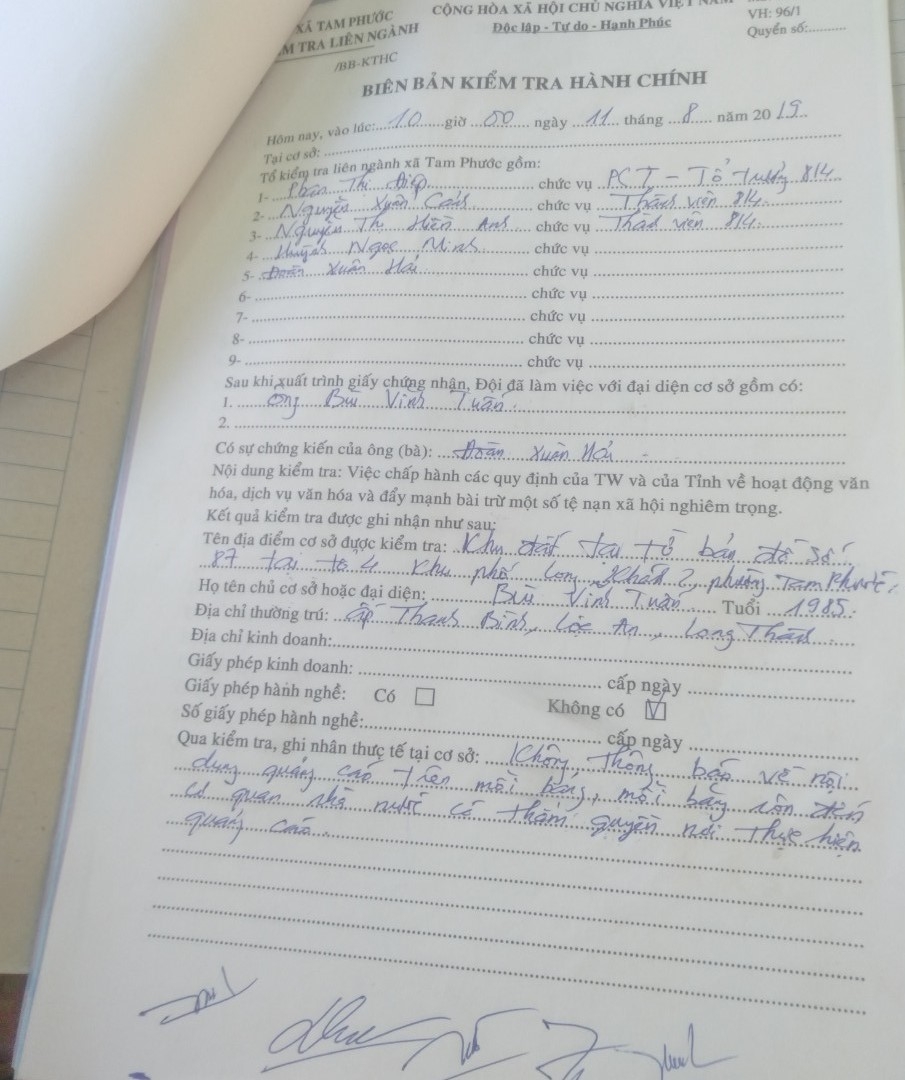 XÃ TAM PHƯỚC
CỘNG HÒA XÃ HỘI CHỦ NGHĨA VIỆT NAM
M TRA LIÊN NGÀNH
Độc lập - Tự do - Hạnh Phúc
VH: 96/1
Quyển số:
/BB-KTHC
BIÊN BẢN KIỂM TRA HÀNH CHÍNH
Hôm nay, vào lúc: 10 giờ 00 ngày 11 tháng 8 năm 2019
Tại cơ sở:
Tổ kiểm tra liên ngành xã Tam Phước gồm:
1- Phan Thị Điệp chức vụ PCT - Tổ trưởng 814
2- Nguyễn Xuân Cảnh chức vụ Thành viên 814
3- Nguyễn Thị Hiền Anh chức vụ Thành viên 814
4- Huỳnh Ngọc Minh chức vụ
5- Đoàn Xuân Hải chức vụ
6- chức vụ
7- chức vụ
8- chức vụ
9- chức vụ
Sau khi xuất trình giấy chứng nhận, Đội đã làm việc với đại diện cơ sở gồm có:
1. ông Bùi Vĩnh Tuấn
2.
Có sự chứng kiến của ông (bà): Đoàn Xuân Hải
Nội dung kiểm tra: Việc chấp hành các quy định của TW và của Tỉnh về hoạt động văn
hóa, dịch vụ văn hóa và đẩy mạnh bài trừ một số tệ nạn xã hội nghiêm trọng.
Kết quả kiểm tra được ghi nhận như sau:
Tên địa điểm cơ sở được kiểm tra: Khu đất tại tờ bản đồ số
87 tại tổ 4 khu phố Long Khánh 2, phường Tam Phước
Họ tên chủ cơ sở hoặc đại diện: Bùi Vĩnh Tuấn Tuổi 1985
Địa chỉ thường trú: ấp Thanh Bình, Lộc An, Long Thành
Địa chỉ kinh doanh:
Giấy phép kinh doanh: cấp ngày
Giấy phép hành nghề: Có Không có
Số giấy phép hành nghề: cấp ngày
Qua kiểm tra, ghi nhận thực tế tại cơ sở: Không thông báo về nội
dung quảng cáo trên mỗi bảng, mỗi băng rôn đến
cơ quan nhà nước có thẩm quyền nơi thực hiện
quảng cáo.